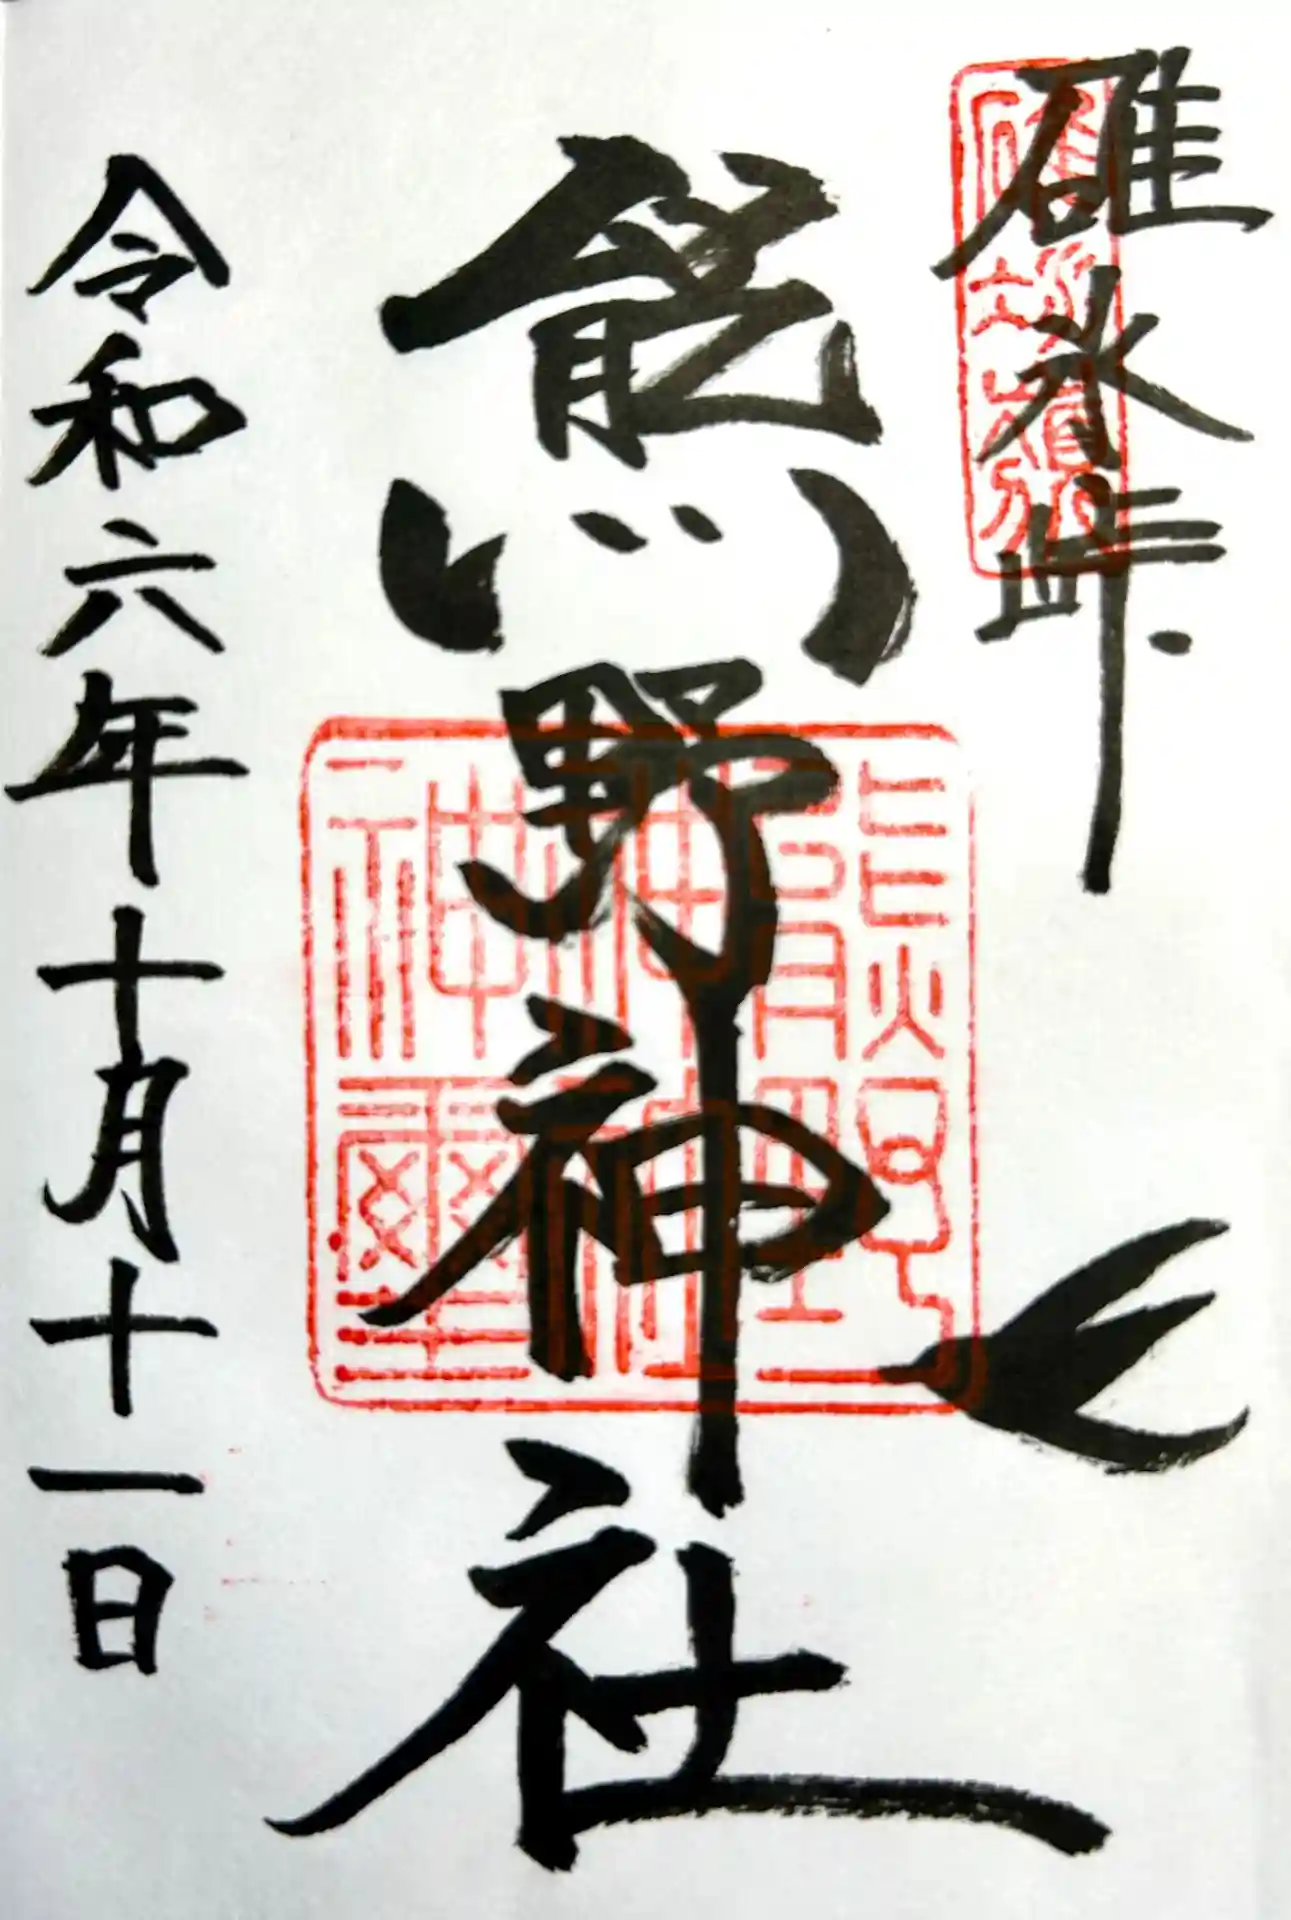 碓氷峠
熊野神社
令和六年十月十一日
熊野
神社
神璽